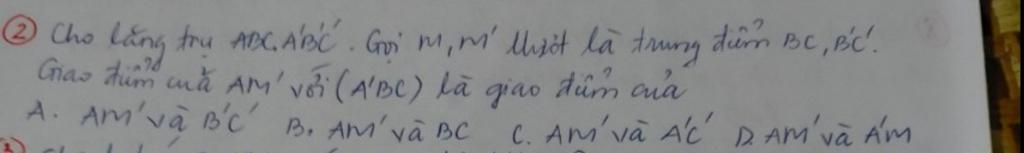 ② Cho lăng trụ ABC.A'B'C'. Gọi M, M' lll là trung điểm BC, B'C'.
Giao điểm của AM' với (A'BC) là giao điểm của
A. AM' và B'C' B. AM' và BC C. AM' và A'C' D. AM' và A'M